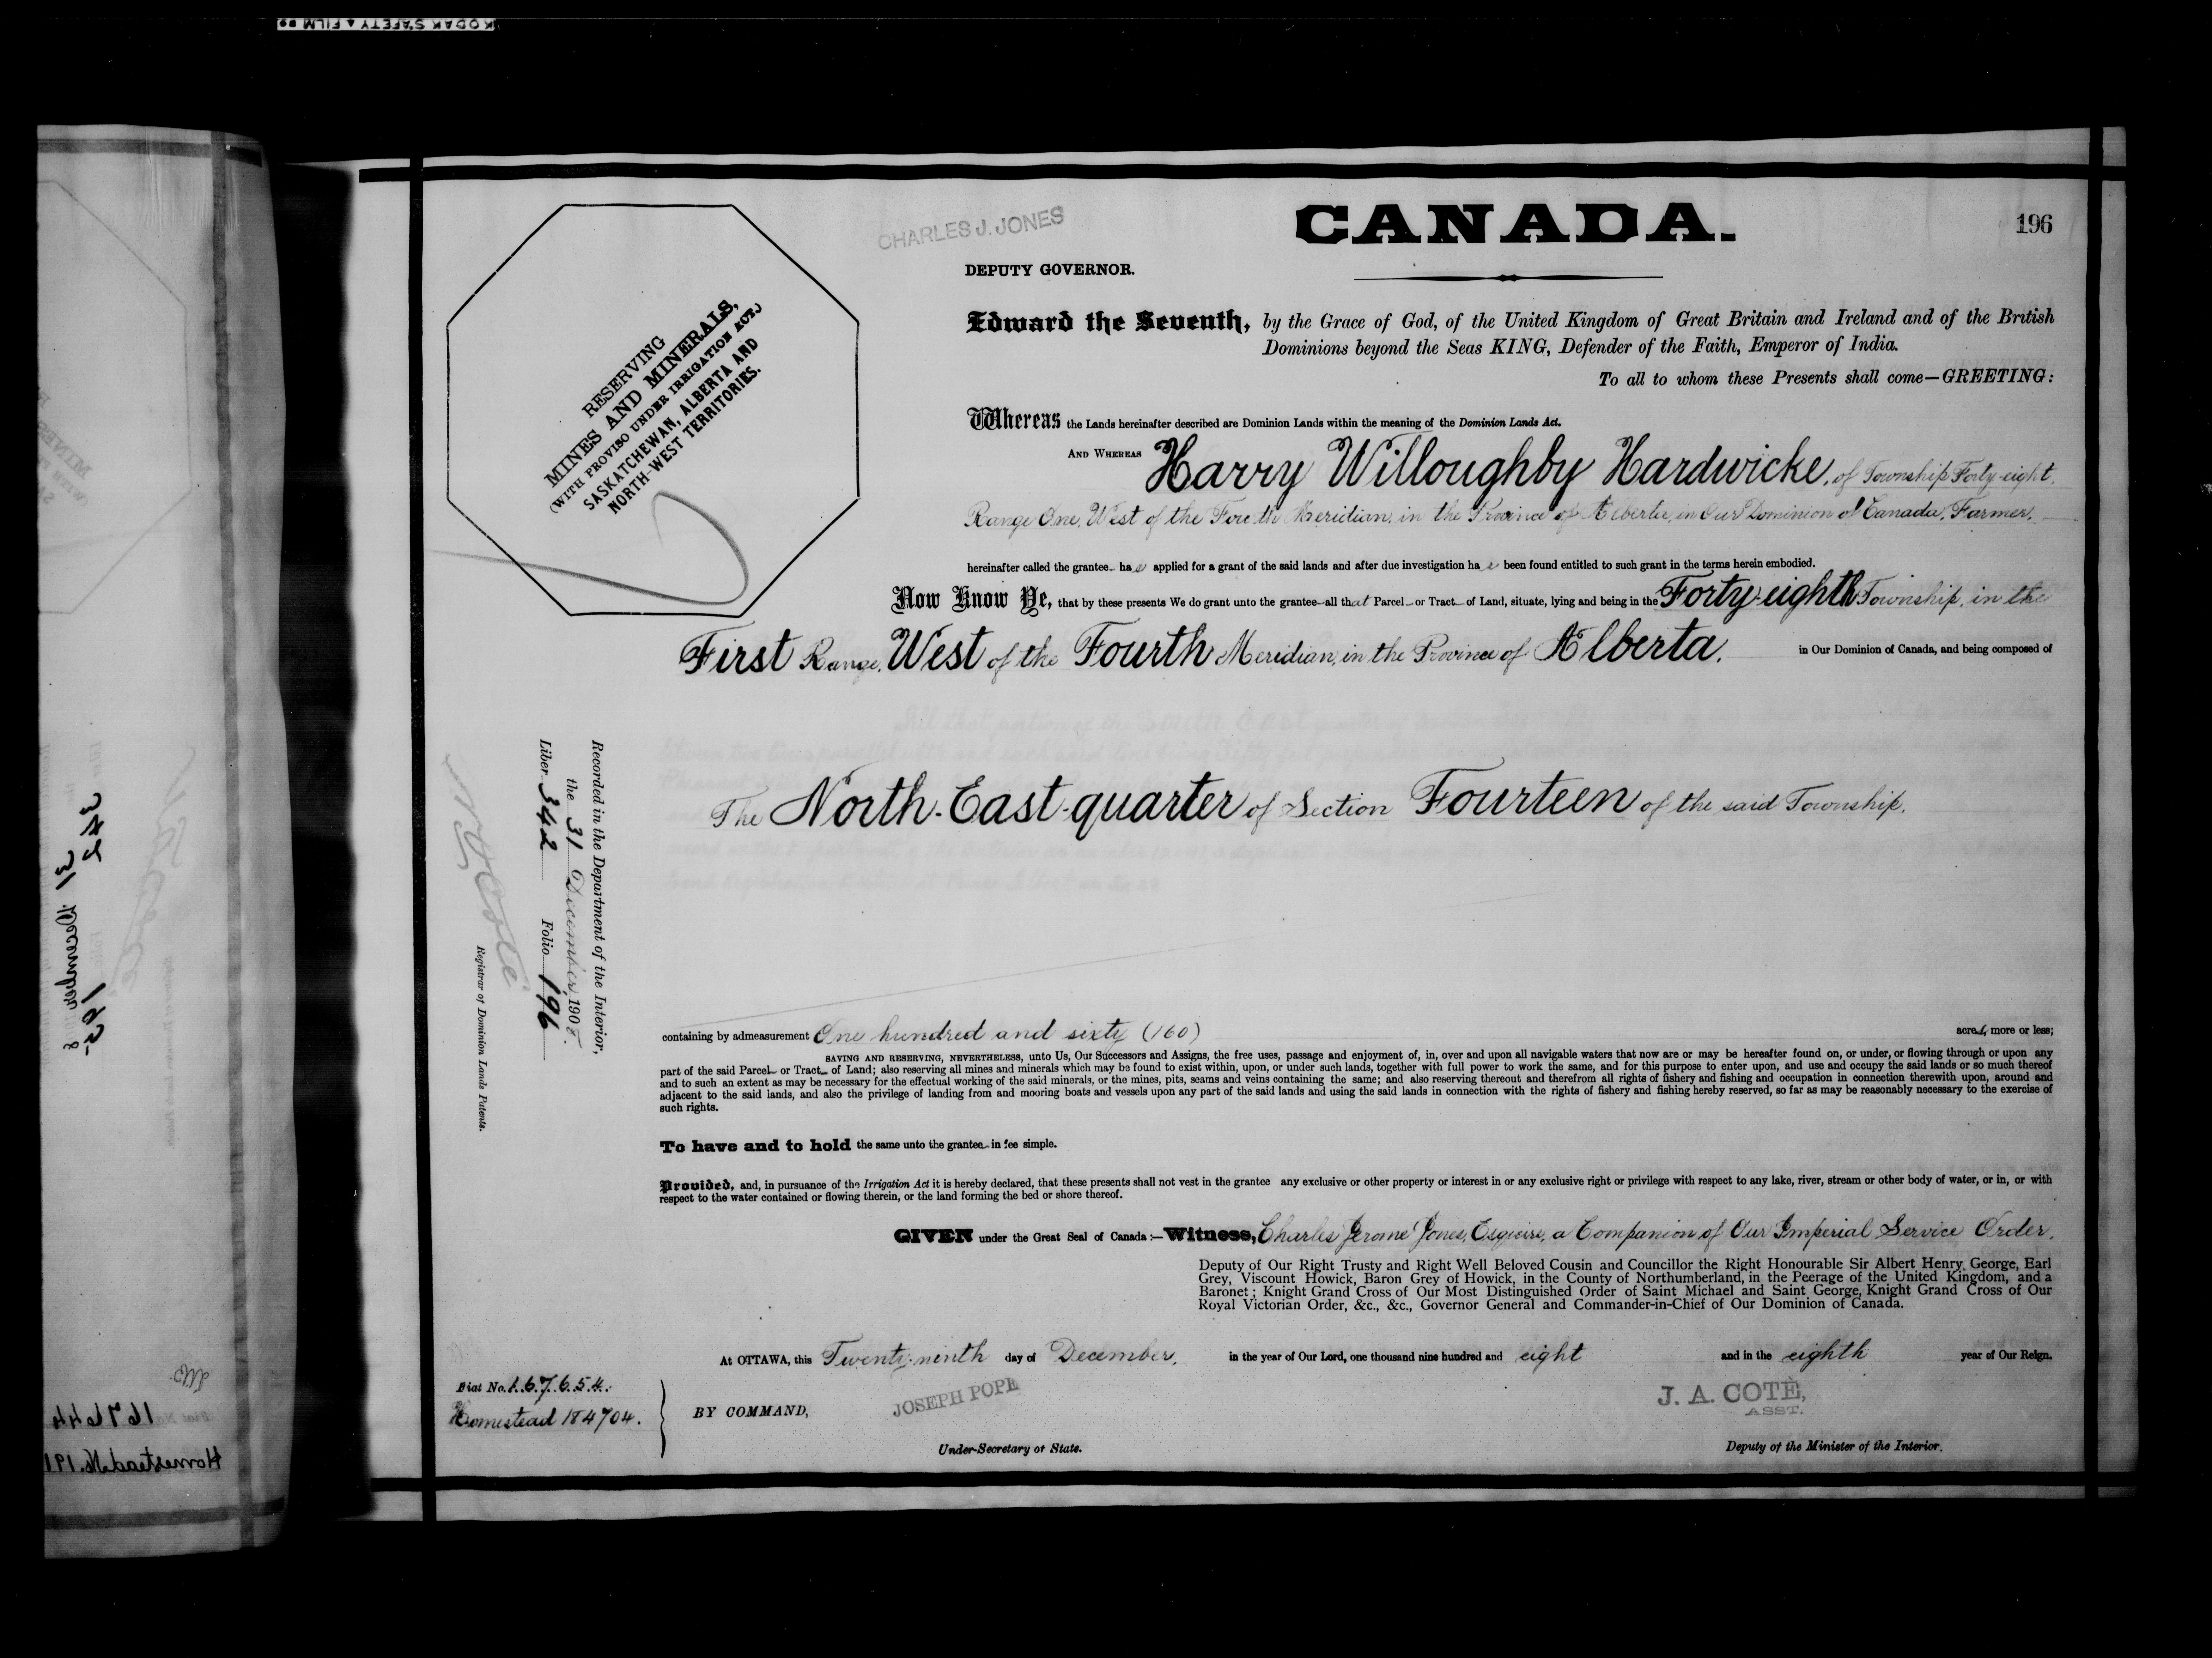 KODAK SAFETY FILM
CANADA.
196
CHARLES J. JONES
DEPUTY GOVERNOR.
RESERVING
MINES AND MINERALS,
(WITH PROVISO UNDER IRRIGATION ACT.)
SASKATCHEWAN, ALBERTA AND
NORTH-WEST TERRITORIES.
Edward the Seventh, by the Grace of God, of the United Kingdom of Great Britain and Ireland and of the British
Dominions beyond the Seas KING, Defender of the Faith, Emperor of India.
To all to whom these Presents shall come—GREETING:
Whereas the Lands hereinafter described are Dominion Lands within the meaning of the Dominion Lands Act.
AND WHEREAS Harry Willoughby Hardwicke, of Township Forty-eight,
Range One, West of the Fourth Meridian, in the Province of Alberta, in Our Dominion of Canada, Farmer,
hereinafter called the grantee has applied for a grant of the said lands and after due investigation has been found entitled to such grant in the terms herein embodied.
Now Know Ye, that by these presents We do grant unto the grantee all that Parcel or Tract of Land, situate, lying and being in the Forty-eighth Township, in the
First Range, West of the Fourth Meridian, in the Province of Alberta, in Our Dominion of Canada, and being composed of
The North-East-quarter of Section Fourteen of the said Township.
containing by admeasurement One hundred and sixty (160) acres, more or less;
SAVING AND RESERVING, NEVERTHELESS, unto Us, Our Successors and Assigns, the free uses, passage and enjoyment of, in, over and upon all navigable waters that now are or may be hereafter found on, or under, or flowing through or upon any
part of the said Parcel or Tract of Land; also reserving all mines and minerals which may be found to exist within, upon, or under such lands, together with full power to work the same, and for this purpose to enter upon, and use and occupy the said lands or so much thereof
and to such an extent as may be necessary for the effectual working of the said minerals, or the mines, pits, seams and veins containing the same; and also reserving thereout and therefrom all rights of fishery and fishing and occupation in connection therewith upon, around and
adjacent to the said lands, and also the privilege of landing from and mooring boats and vessels upon any part of the said lands and using the said lands in connection with the rights of fishery and fishing hereby reserved, so far as may be reasonably necessary to the exercise of
such rights.
To have and to hold the same unto the grantee in fee simple.
Provided, and, in pursuance of the Irrigation Act it is hereby declared, that these presents shall not vest in the grantee any exclusive or other property or interest in or any exclusive right or privilege with respect to any lake, river, stream or other body of water, or in, or with
respect to the water contained or flowing therein, or the land forming the bed or shore thereof.
GIVEN under the Great Seal of Canada:—Witness, Charles Jerome Jones, Esquire, a Companion of Our Imperial Service Order,
Deputy of Our Right Trusty and Right Well Beloved Cousin and Councillor the Right Honourable Sir Albert Henry George, Earl
Grey, Viscount Howick, Baron Grey of Howick, in the County of Northumberland, in the Peerage of the United Kingdom, and a
Baronet; Knight Grand Cross of Our Most Distinguished Order of Saint Michael and Saint George, Knight Grand Cross of Our
Royal Victorian Order, &c., &c., Governor General and Commander-in-Chief of Our Dominion of Canada.
At OTTAWA, this Twenty-ninth day of December, in the year of Our Lord, one thousand nine hundred and eight and in the eighth year of Our Reign.
Fiat No. 167654.
Homestead 184704.
BY COMMAND,
JOSEPH POPE
Under-Secretary of State.
J. A. COTÉ,
ASST.
Deputy of the Minister of the Interior.
Recorded in the Department of the Interior,
the 31 December 1908.
Liber 342 Folio 196
N. O. Coté
Registrar of Dominion Lands Patents.
342
195
31 December
167644
Homestead No. 191